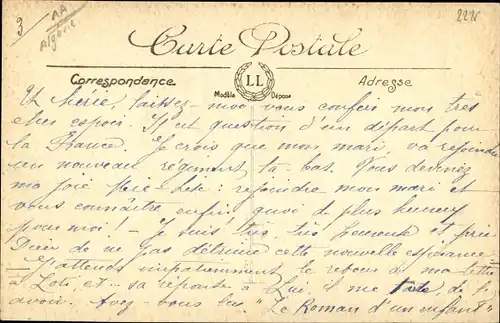 3
AA
Algérie
222
Carte Postale
Correspondance
LL
Modèle Déposé
Adresse
chérie, laissez-moi vous confier mon très
cher espoir. Il est question d'un départ pour
la France. Je crois que mon mari, va rejoindre
un nouveau régiment là-bas. Vous devinez
ma joie : rejoindre mon mari et
vous connaître enfin, quoi de plus heureux
pour moi ! - Je suis très très heureuse et prie
Dieu de ne pas détruire cette nouvelle espérance
J'attends impatiemment le retour de ma lettre
à Loti et sa réponse à Lui, il me tarde, de l'
avoir. Avez vous lu "Le Roman d'un enfant"